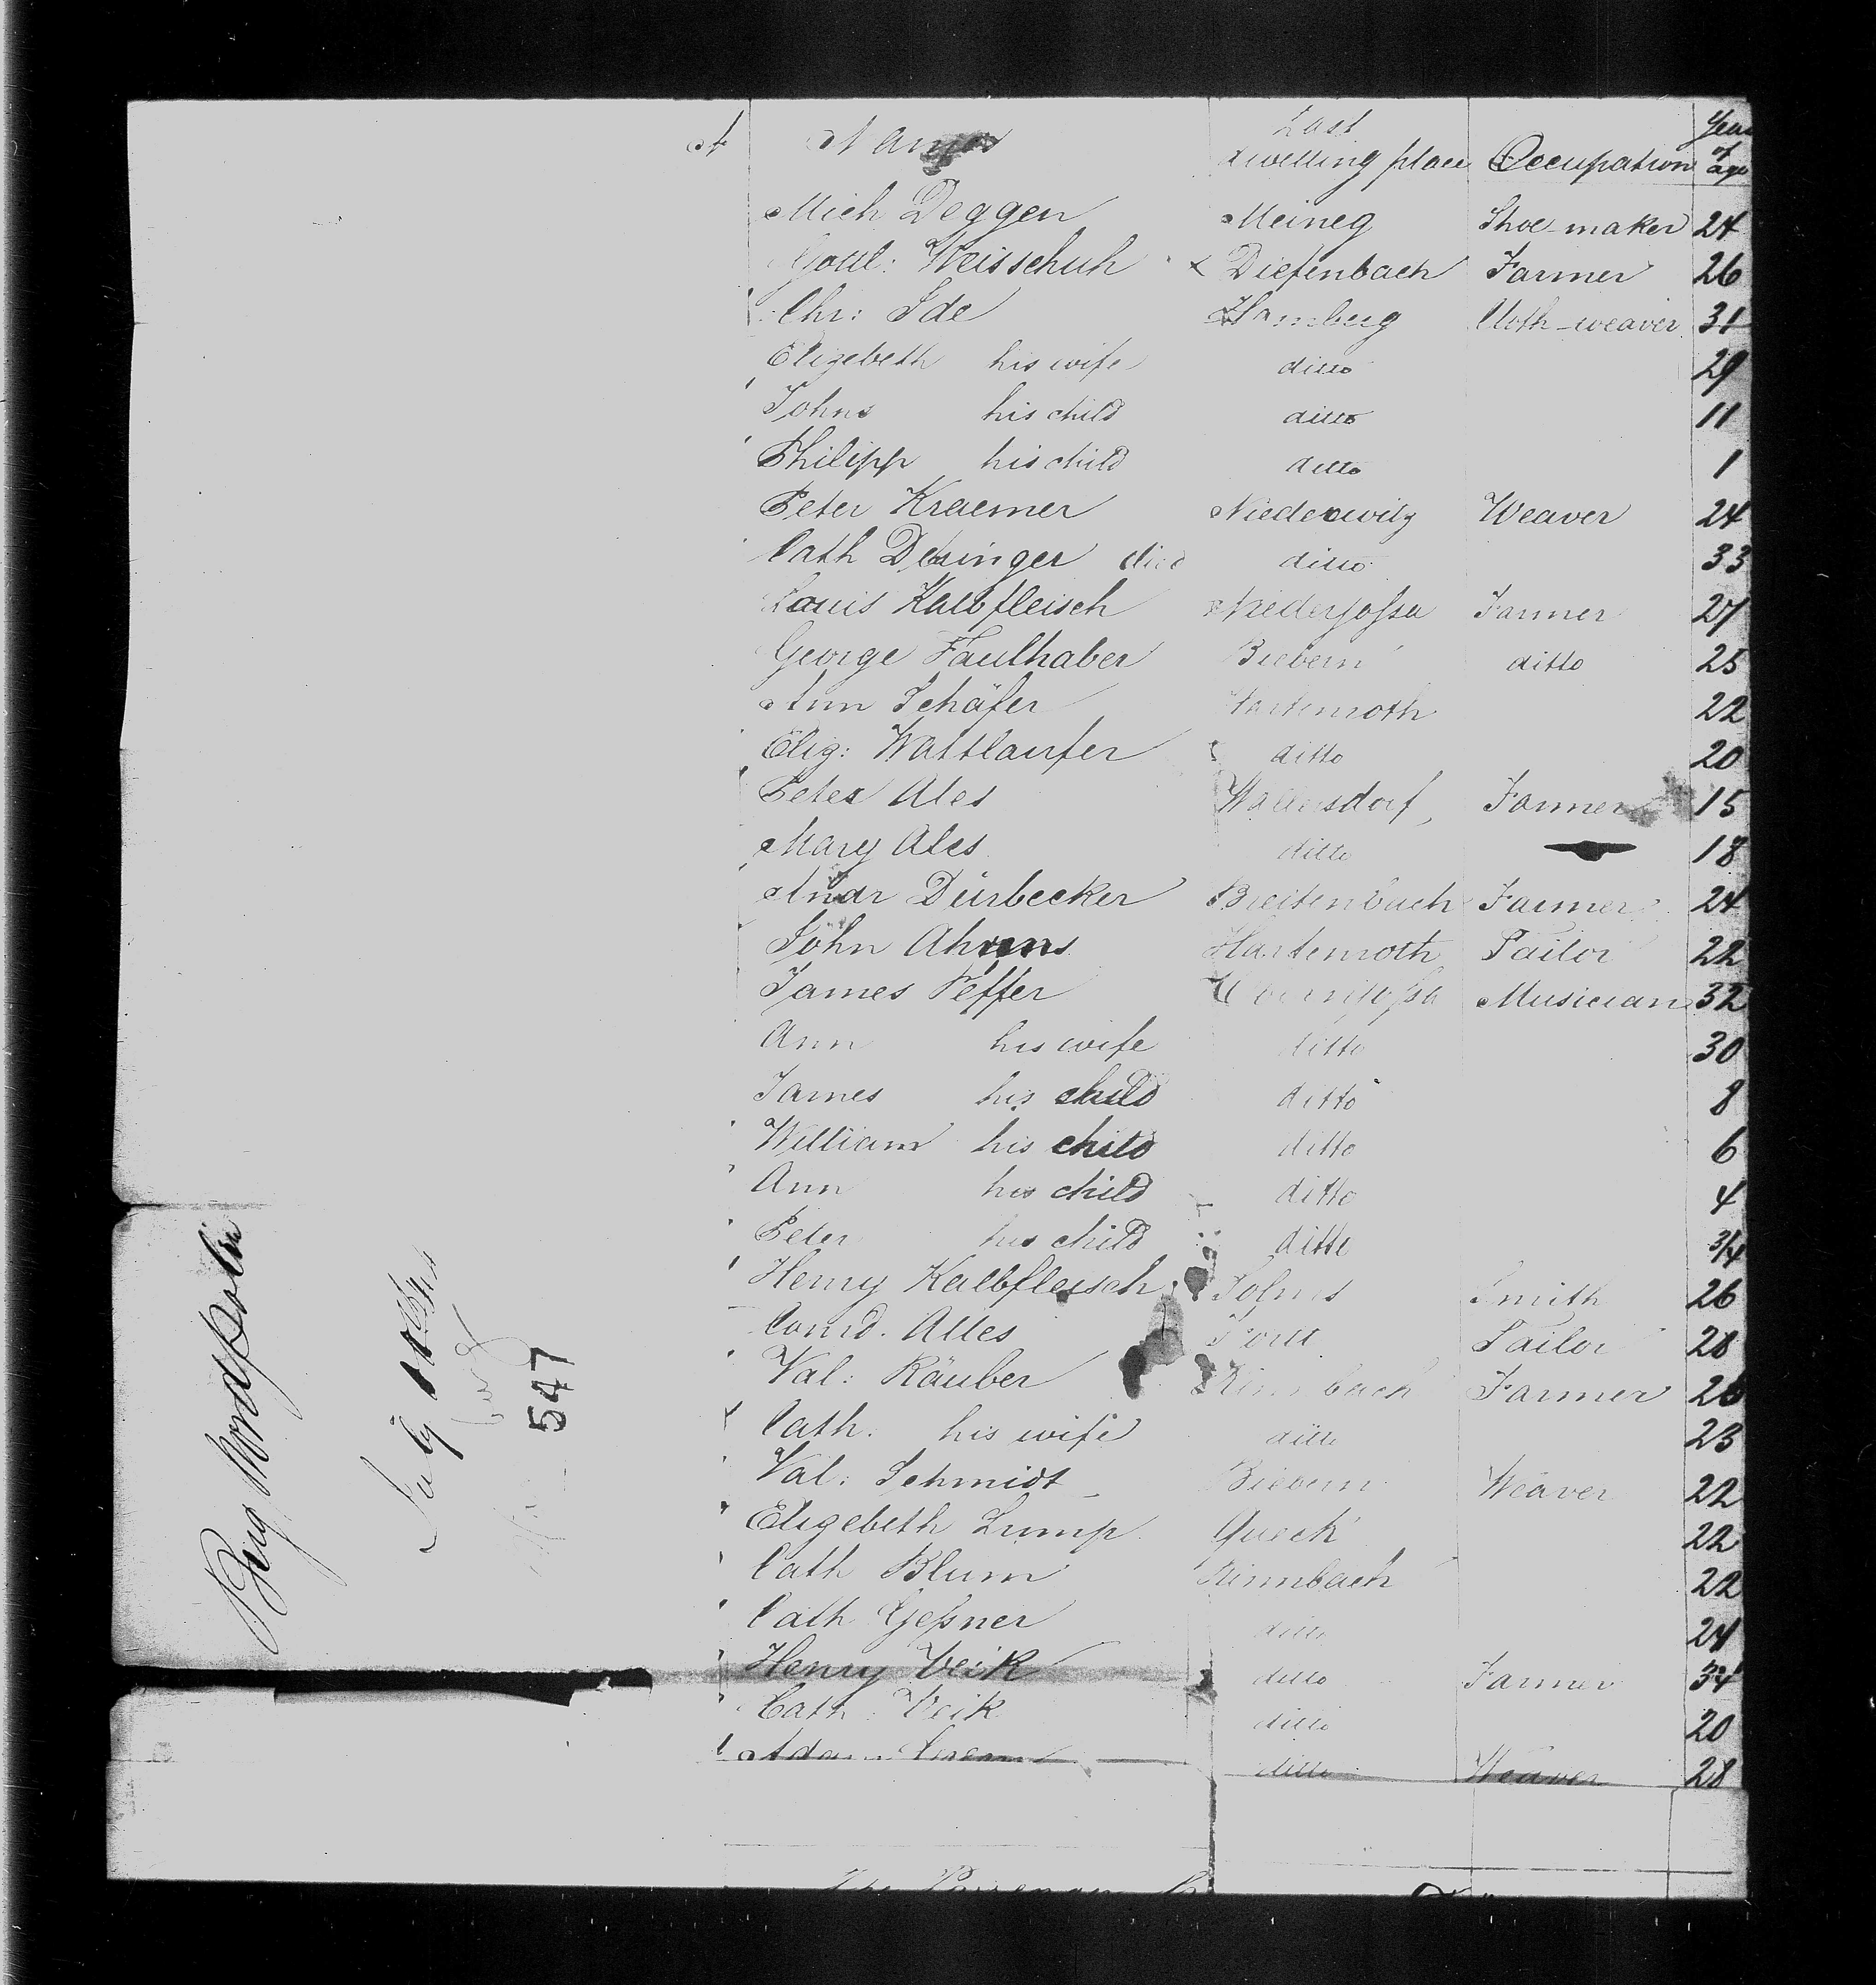 N Names Last dwelling place Occupation Years of age
Mich Deggen Meineg Shoe-maker 24
Gottl: Weisschuh x Diefenbach Farmer 26
Chr: Ide Homberg Cloth-weaver 31
Elizebeth his wife ditto 29
Johns his child ditto 11
Philipp his child ditto 1
Peter Kraemer Niederwitz Weaver 24
Cath Deringer died ditto 33
Louis Kalbfleisch Niederjossa Farmer 27
George Faulhaber Biebern ditto 25
Ann Schäfer Hartenroth 22
Eliz: Wattlaufer ditto 20
Peter Ales Wallersdorf Farmer 15
Mary Ales ditto 18
Andr Dürbecker Breitenbach Farmer 24
John Ahrens Hartenroth Tailor 22
James Peffer Musician 32
Ann his wife ditto 30
James his child ditto 8
William his child ditto 6
Ann his child ditto 4
Peter his child ditto 3/4
Henry Kalbfleisch Solms Smith 26
Conrd. Alles Tailor 28
Val: Räuber Rimbach Farmer 26
Cath. his wife ditto 23
Val: Schmidt Biebern Weaver 22
Elizebeth Lump Queck 22
Cath Blum Rimmbach 22
Cath Geßner ditto 24
Henry Veik ditto Farmer 34
Cath: Veik ditto 20
Adam ditto Weaver 28
The Passenger
Brig
July
547